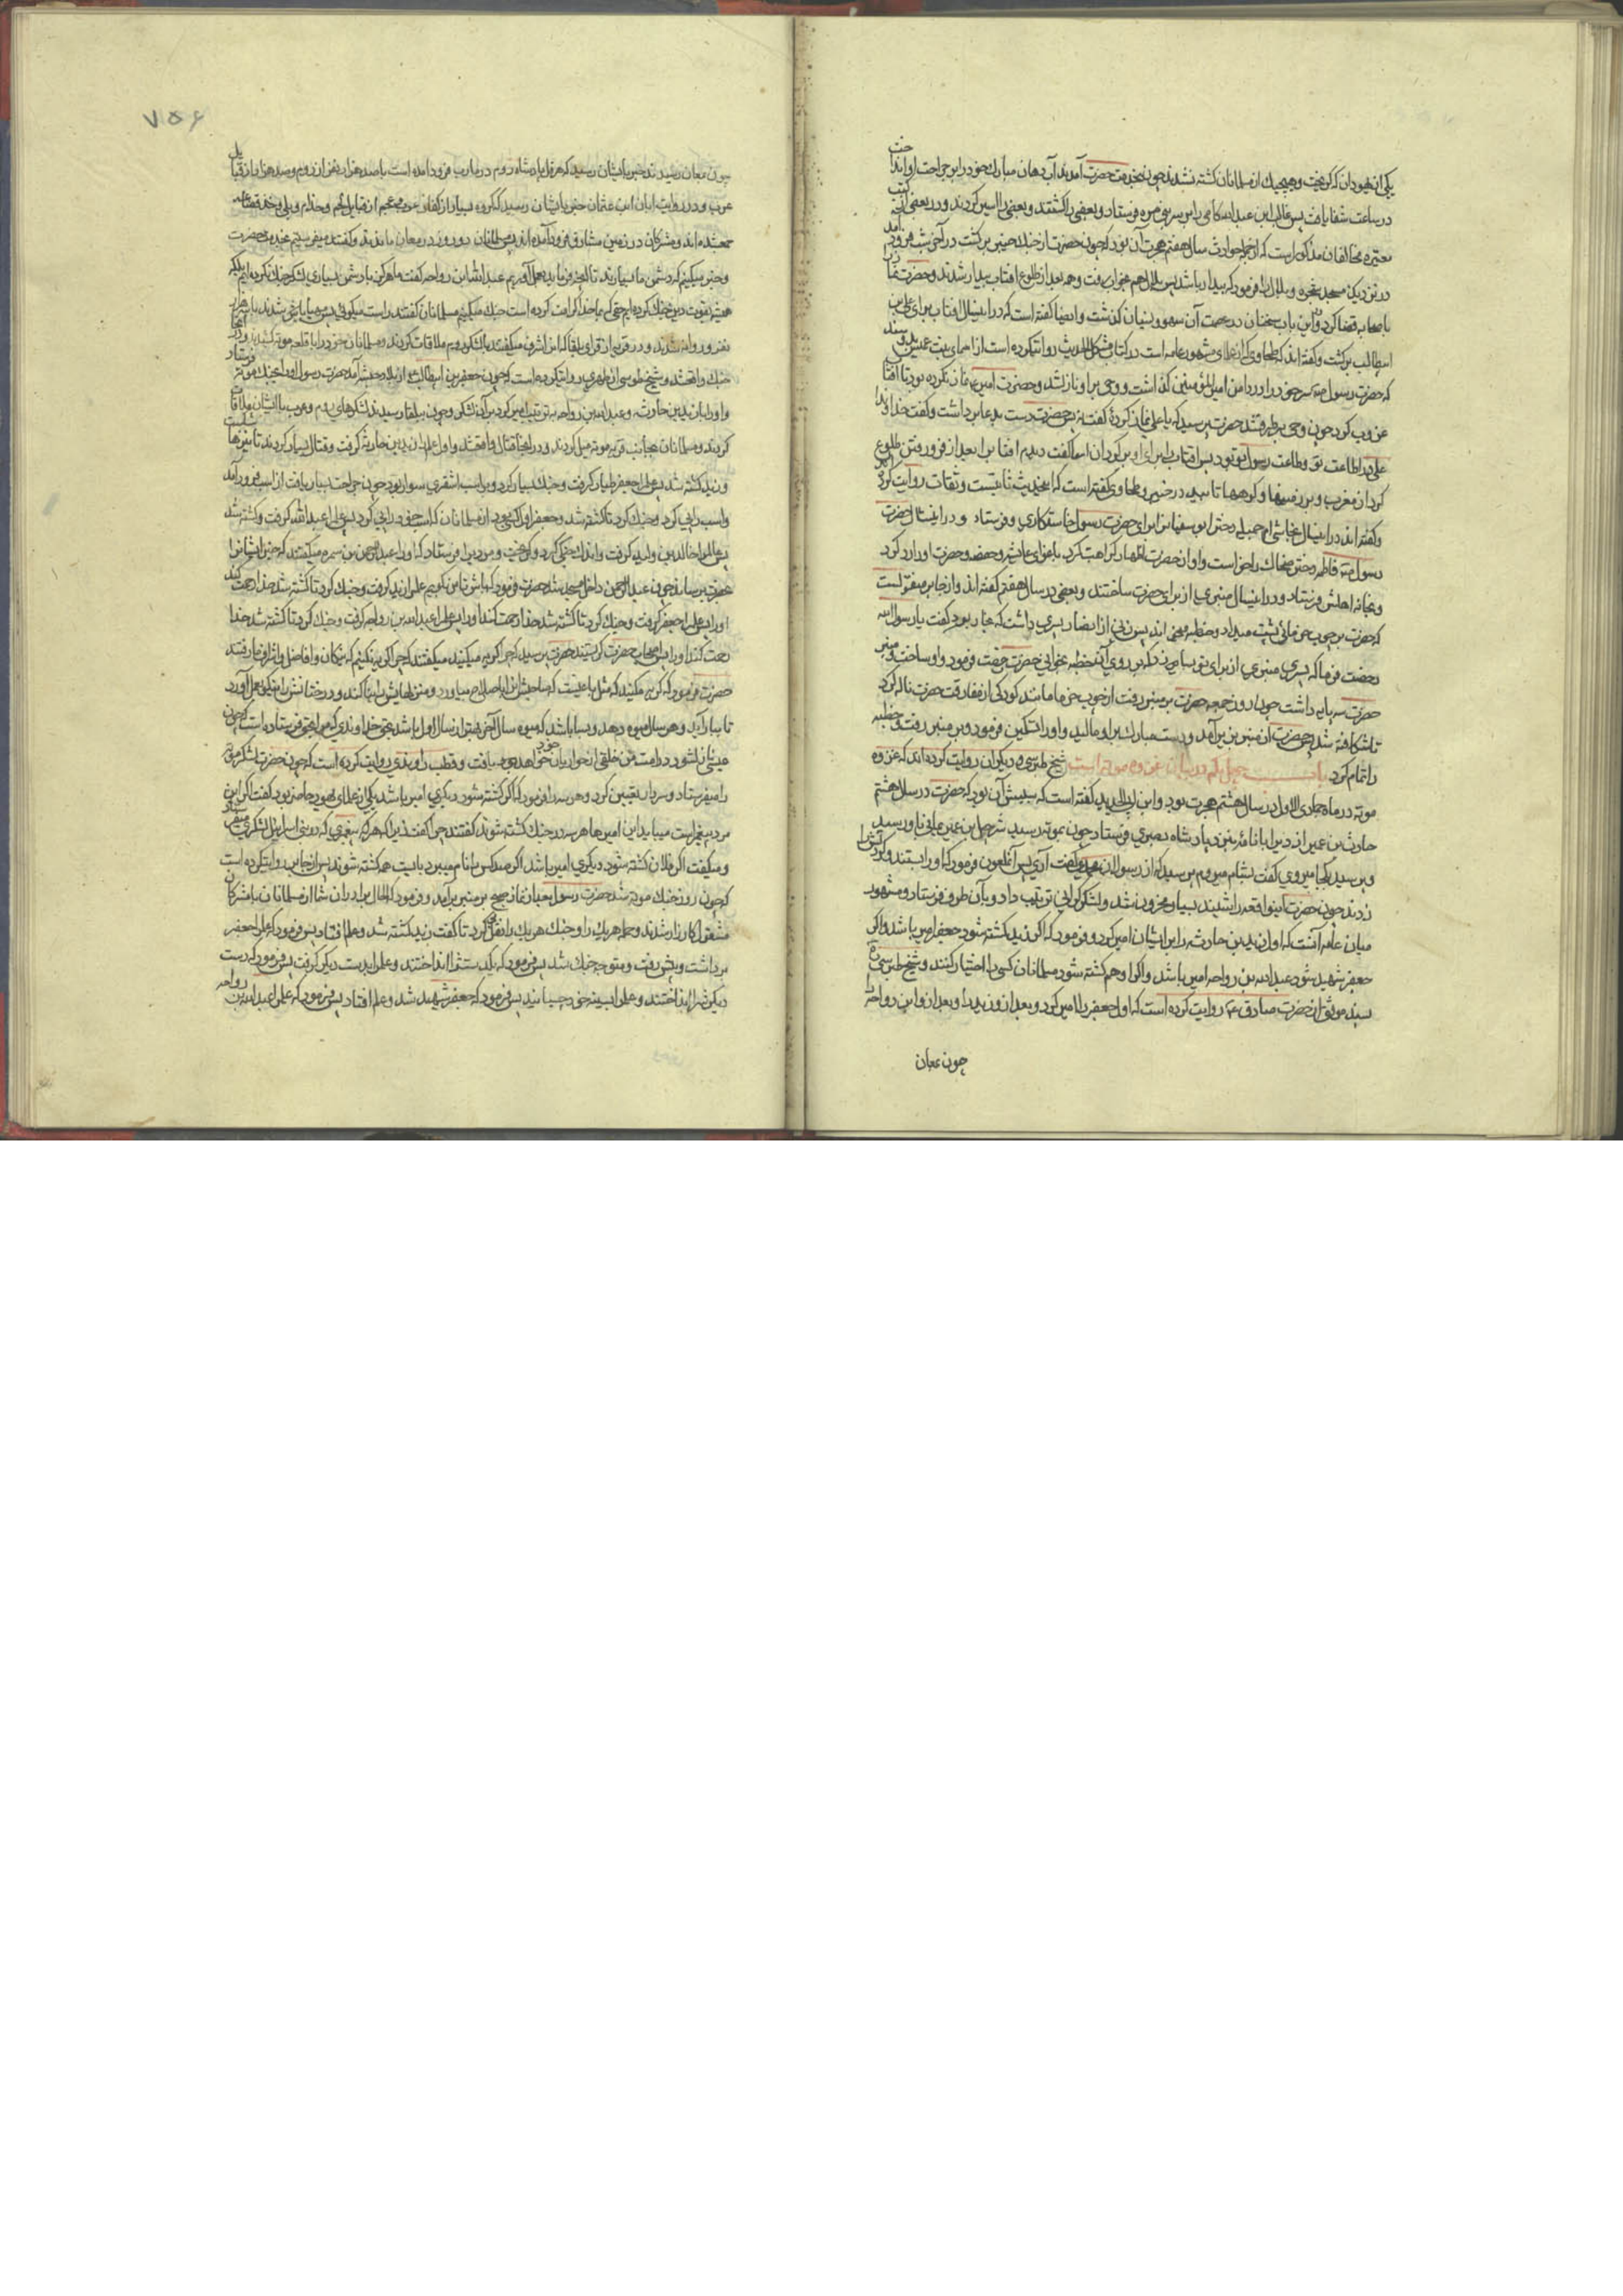 یکی از یهودان که گریخت و هیچیك از مسلمانان کشته نشدند چون بخدمت حضرت آمدند آب دهان مبارك خود را بر جراحت او انداخت
در ساعت شفا یافت پس غالب ابن عبدالله کلبی را بر سر بنی مره فرستاد و بعضی را کشتند و بعضی را اسیر کردند و در بعضی از کتب
معتبره مخالفان مذکور است که از جمله حوادث سال هفتم هجرت آن بود که چون حضرت از جنك خیبر برگشت در آخر شب فرود آمد
در نزدیك صبح و بلال را فرمود که بیدار باشد پس بلال هم بخواب رفت و همه بعد از طلوع افتاب بیدار شدند و حضرت نماز را
با صحابه قضا کرد و در این باب سخنان در بحث آن سهو و نسیان گذشت و ایضا گفته است که در اینسال افتاب برای علی بن
ابیطالب برگشت و گفته اند که طحاوی که از علمای مشهور عامه است در کتاب مشکل الحدیث روایت کرده است از اسمای بنت عمیس بدو سند
که حضرت رسول ص سر خود را در دامن امیرالمؤمنین گذاشت و وحی بر او نازل شد و حضرت امیر ع نماز نکرده بود تا افتاب
غروب کرد چون وحی برطرف شد حضرت پرسید که یا علی نماز کردهٔ گفت نه پس حضرت دست بدعا برداشت و گفت خداوندا
علی در اطاعت تو و طاعت رسول تو بود پس افتاب را برای او برگردان اسما گفت دیدم افتاب را بعد از فرو رفتن طلوع
کرد از مغرب و بر زمینها و کوهها تابید در خیبر و طحاوی گفته است که اینحدیث ثابتست و ثقات روایت کرده اند
و گفته اند در اینسال نجاشی ام حبیبه دختر ابوسفیان را برای حضرت رسول خواستگاری و فرستاد و در اینسال حضرت
رسول ص فاطمه دختر ضحاك را خواست و او از حضرت اظهار کراهت کرد باغوای عایشه و حفصه و حضرت او را رد کرد
و بخانه اهلش فرستاد و در اینسال منبری از برای حضرت ساختند و بعضی در سال هفتم گفته اند و از جابر منقولست
که حضرت بر چوب خرمائی پشت میداد و خطبه میخواند پس زنی از انصار پسری داشت که نجار بود گفت یا رسول الله
رخصت فرما که پسرم منبری از برای تو بسازد که بر روی آن خطبه بخوانی حضرت رخصت فرمود و او ساخت و منبر
حضرت سه پایه داشت چون روز جمعه حضرت بر منبر رفت از چوب خرما مانند کودکی از مفارقت حضرت ناله کرد
تا شکافته شد پس حضرت از منبر بزیر آمد و دست مبارك بر او مالید و او را تسکین فرمود و بر منبر رفت و خطبه
را تمام کرد باب چهل یکم در بیان غزوه موته است شیخ طبرسی و دیگران روایت کرده اند که غزوه
موته در ماه جمادی الاول در سال هشتم هجرت بود و ابن ابی الحدید گفته است که سببش آن بود که حضرت در سال هشتم
حارث بن عمیر ازدی را با نامهٔ بنزد پادشاه بصری فرستاد چون بموته رسید شرحبیل بن عمرو غسانی باو رسید
و پرسید بکجا میروی گفت بشام میروم پرسید که از رسولان محمدی گفت آری پس آنملعون فرمود که او را بستند و گردنش را
زدند چون حضرت اینواقعه را شنید بسیار محزون شد و لشکر گرانی ترتیب داد و بآن طرف فرستاد و مشهور
میان عامه آنست که اول زید بن حارثه را بر ایشان امیر کرد و فرمود که اگر زید کشته شود جعفر امیر باشد و اگر
جعفر شهید شود عبدالله بن رواحه امیر باشد و اگر او هم کشته شود مسلمانان کسی را اختیار کنند و شیخ طبرسی ره
بسند موثق از حضرت صادق ع روایت کرده است که اول جعفر را امیر کرد و بعد از او زید را و بعد از او ابن رواحه را
چون بمعان
۷۵۶
چون بمعان رسیدند خبر بایشان رسید که هرقل پادشاه روم در مارب فرود آمده است با صد هزار نفر از روم و صد هزار از قبایل
عرب و در روایت ابان ابن عثمان خبر بایشان رسید که گروه بسیار از کفار عرب و عجم از قبایل لخم و جذام و بلی و قضاعه
جمع شده اند و مشرکان در زمین مشارق فرود آمده اند پس مسلمانان دو روز در معان ماندند و گفتند میفرستیم بخدمت حضرت
و خبر میکنیم کثرت دشمن ما بسیارند تا آنچه فرماید بعمل آوریم عبدالله ابن رواحه گفت ما هرگز با دشمن ببسیاری لشکر جنك نکرده ایم بلکه
همیشه بقوت دین جنك کرده ایم که خدا ما را کرامت کرده است جنك میکنیم مسلمانان گفتند راست میگوئی پس مهیا شدند با سه هزار
نفر و روانه شدند و در قریه از قرای بلقا که انرا شرف میگفتند با لشکر روم ملاقات کردند و مسلمانان خود را بقلعه موته کشیدند و در آنجا
جنك واقع شد و شیخ طوسی از زهری روایت کرده است که چون جعفر بن ابیطالب از بلاد حبشه آمد حضرت رسول او را بجنك موته فرستاد
و او را با زید بن حارثه و عبدالله بن رواحه بترتیب امیر کرد بر آن لشکر و چون ببلقا رسیدند لشکرهای روم و عرب با ایشان ملاقات
کردند و مسلمانان بجانب قریه موته میل کردند و در آنجا قتال واقع شد و اول علم را زید بن حارثه گرفت و قتال بسیار کرد تا نیزها
و زید کشته شد پس علم را جعفر طیار گرفت و جنك بسیار کرد و بر اسب اشقری سوار بود چون جراحت بسیار یافت از اسب فرود آمد
و اسب را پی کرد و جنك کرد تا کشته شد و جعفر اول کسی بود از مسلمانان که اسب خود را پی کرد پس علم را عبدالله گرفت و کشته شد
پس علم را خالد بن ولید گرفت و اندك جنگی کرد و گریخت و مردیرا فرستاد که او را عبدالرحمن بن سمره میگفتند که خبر ایشانرا
بحضرت برساند چون عبدالرحمن داخل مسجد شد حضرت فرمود که باش تا من بگویم علم را زید گرفت و جنك کرد تا کشته شد خدا رحمت کند
او را پس علم را جعفر گرفت و جنك کرد تا کشته شد خدا رحمت کند او را پس علم را عبدالله بن رواحه گرفت و جنك کرد تا کشته شد خدا
رحمت کند او را پس اصحاب حضرت گریستند حضرت پرسید که چرا گریه میکنید میگفتند که چرا گریه نکنیم که نیکان و افاضل و اشراف ما رفتند
حضرت فرمود که گریه مکنید که مثل باغیست که صاحبش انرا باصلاح میاورد و منزلهایش را بنا کند و درختانش را نیکو بعمل آورد
تا ببار آید و هر سال میوه دهد و بسا باشد که میوه سال آخر بهتر از سال اول باشد بحق خداوندی که مرا بحق فرستاده است که چون
عیسی نازل شود در امت من خلقی از حواریان خود خواهد یافت و قطب راوندی روایت کرده است که چون حضرت لشکر موته
را میفرستاد و سرداران تعیین کرد و هر سه را فرمود که اگر کشته شود دیگری امیر باشد یکی از علمای یهود حاضر بود گفت اگر این
مرد پیغمبر است میباید این امیرها هر سه در جنك کشته شوند گفتند چرا گفت زیرا که هر گاه پیغمبری که در بنی اسرائیل لشکری میفرستاد
و میگفت اگر فلان کشته شود دیگری امیر باشد اگر صد کس را نام میبرد بایست همه کشته شوند پس از جابر روایت کرده است
که چون روز جنك موته شد حضرت رسول بعد از نماز صبح بر منبر برآمد و فرمود که الحال برادران شما از مسلمانان با مشرکان
مشغول کارزار شدند و حمله هر یك را و جنك هر یك را نقل میکرد تا گفت زید کشته شد و علم افتاد پس فرمود که علم را جعفر
برداشت و پیش رفت و متوجه جنك شد پس فرمود که یك دستش را انداختند و علم را بدست دیگر گرفت پس فرمود که دست
دیگرش را انداختند و علم را بسینه خود چسبانید پس فرمود که جعفر شهید شد و علم افتاد پس فرمود که علم را عبدالله بن رواحه